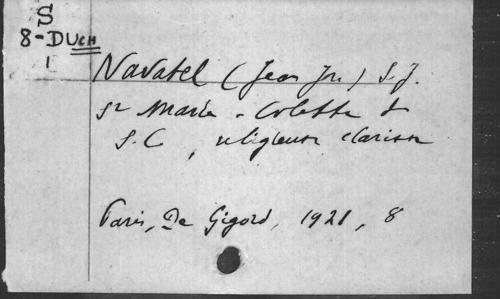 S
8-DUCH
1
Navatel (Jean Jh) S.J.
Sr Marie-Colette d
S.C, religieuse clarisse
Paris, De Gigord, 1921, 8